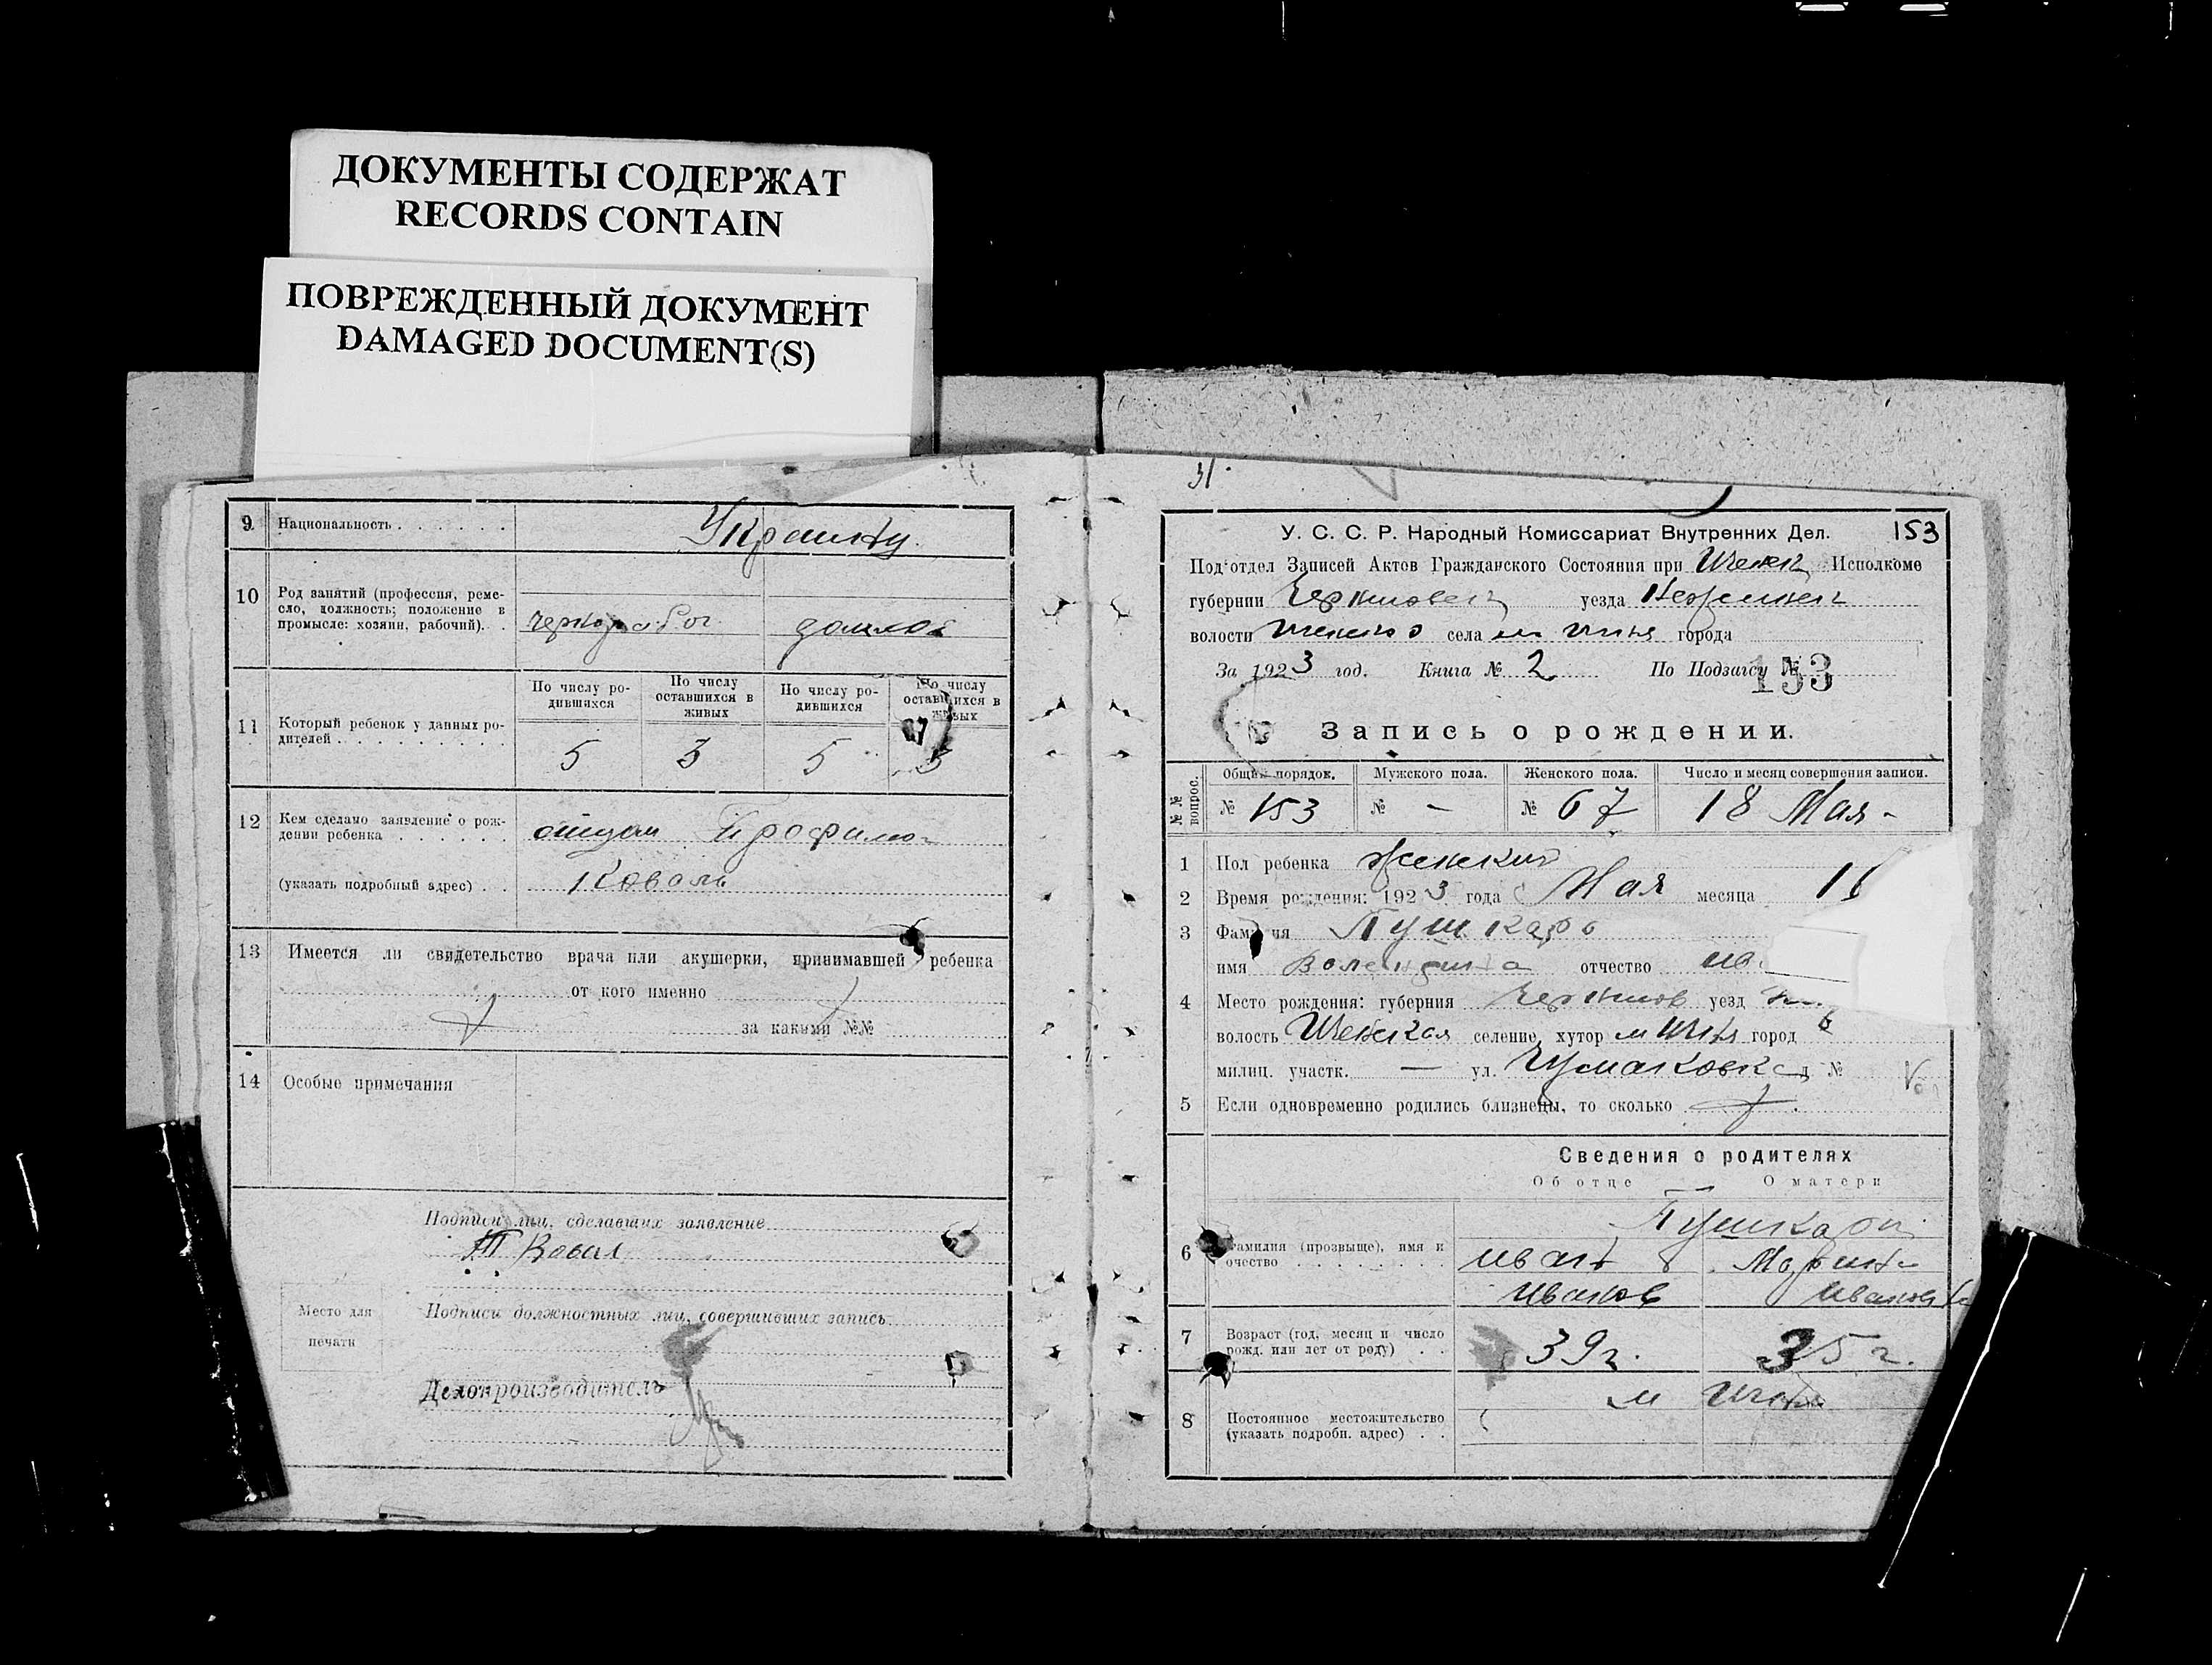 ДОКУМЕНТЫ СОДЕРЖАТ
RECORDS CONTAIN
ПОВРЕЖДЕННЫЙ ДОКУМЕНТ
DAMAGED DOCUMENT(S)
9 Национальность . . . . . .
10 Род занятий (профессия, реме-
сло, должность; положение в
промысле: хозяин, рабочий). .
чернораб
11 Который ребенок у данных ро-
дителей . . . . . . . . .
По числу ро-
дившихся
По числу
оставшихся в
живых
По числу ро-
дившихся
По числу
оставшихся в
живых
5 3 5 3
12 Кем сделано заявление о рож-
дении ребенка . . . . . .
отцом Трофимом
(указать подробный адрес) . .
Коваль
13 Имеется ли свидетельство врача или акушерки, принимавшей ребенка
от кого именно
за какими №№
14 Особые примечания
Подписи лиц, сделавших заявление
Т Ковал
Место для
печати
Подписи должностных лиц, совершивших запись
Делопроизводитель
31.
У. С. С. Р. Народный Комиссариат Внутренних Дел. 153
Под'отдел Записей Актов Гражданского Состояния при Исполкоме
губернии уезда
волости села города
За 1923 год. Книга № 2 По Подзагсу № 153
Запись о рождении.
№№ вопрос.
Общий порядок. Мужского пола. Женского пола. Число и месяц совершения записи.
№ 153 № - № 67 18 Мая -
1 Пол ребенка женский
2 Время рождения: 1923 года Мая месяца
3 Фамилия Пушкарь
имя Волентина отчество
4 Место рождения: губерния Чернигов уезд
волость Иченская селение, хутор м Ичня город
милиц. участк. — ул. Чумаковка д №
5 Если одновременно родились близнецы, то сколько
Сведения о родителях
Об отце О матери
6 Фамилия (прозвище), имя и
очество . . . . . . . .
Пушкарь
Иван
Иванов
7 Возраст (год, месяц и число
рожд. или лет от роду) . .
39 г. 35 г.
8 Постоянное местожительство
(указать подробн. адрес) . .
м Ичня